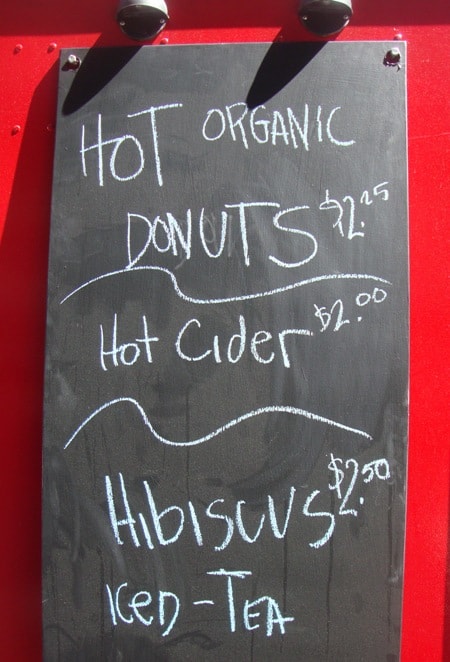 HOT ORGANIC
DONUTS $2.25
Hot Cider $2.00
Hibiscus $2.50
ICED-TEA